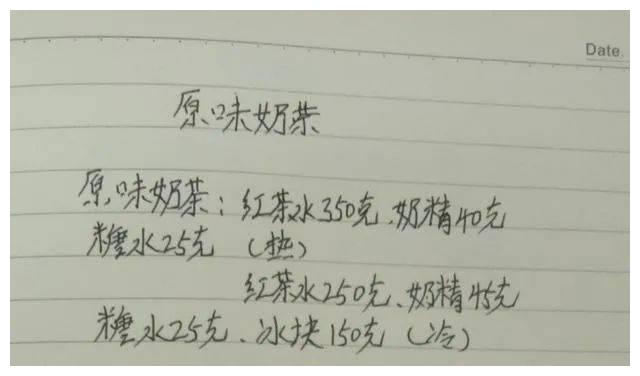 Date.
原味奶茶
原味奶茶：红茶水350克、奶精40克
糖水25克 （热）
红茶水250克、奶精45克
糖水25克、冰块150克（冷）